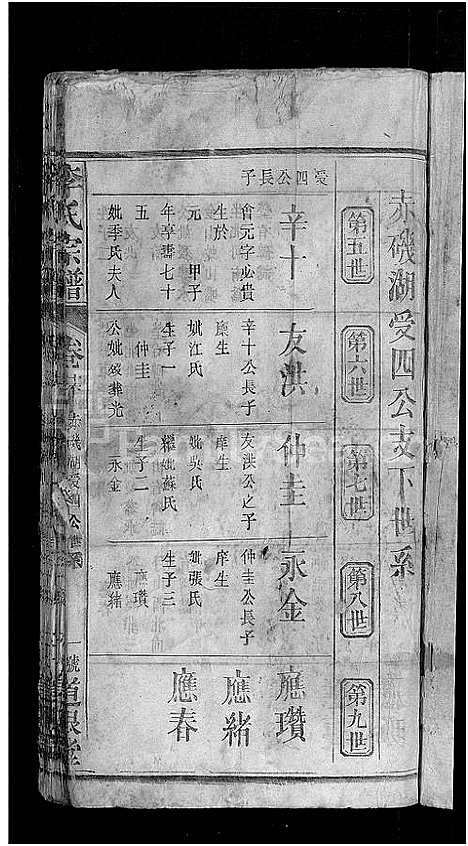 赤磯湖受四公支下世系
第五世
第六世
第七世
第八世
第九世
受四公長子
辛十
會元字必貴
生於
元　甲子
年辛壽七十
五
妣季氏夫人
友洪
辛十公長子
庠生
妣江氏
生子一
仲圭
公妣
仲圭
友洪公之子
庠生
妣吳氏
繼妣蘇氏
生子二
永金
永金
仲圭公長子
庠生
妣張氏
生子三
應瓚
應緒
應瓚
應緒
應春
李氏宗譜
卷
赤磯湖受四公世系
一號
道